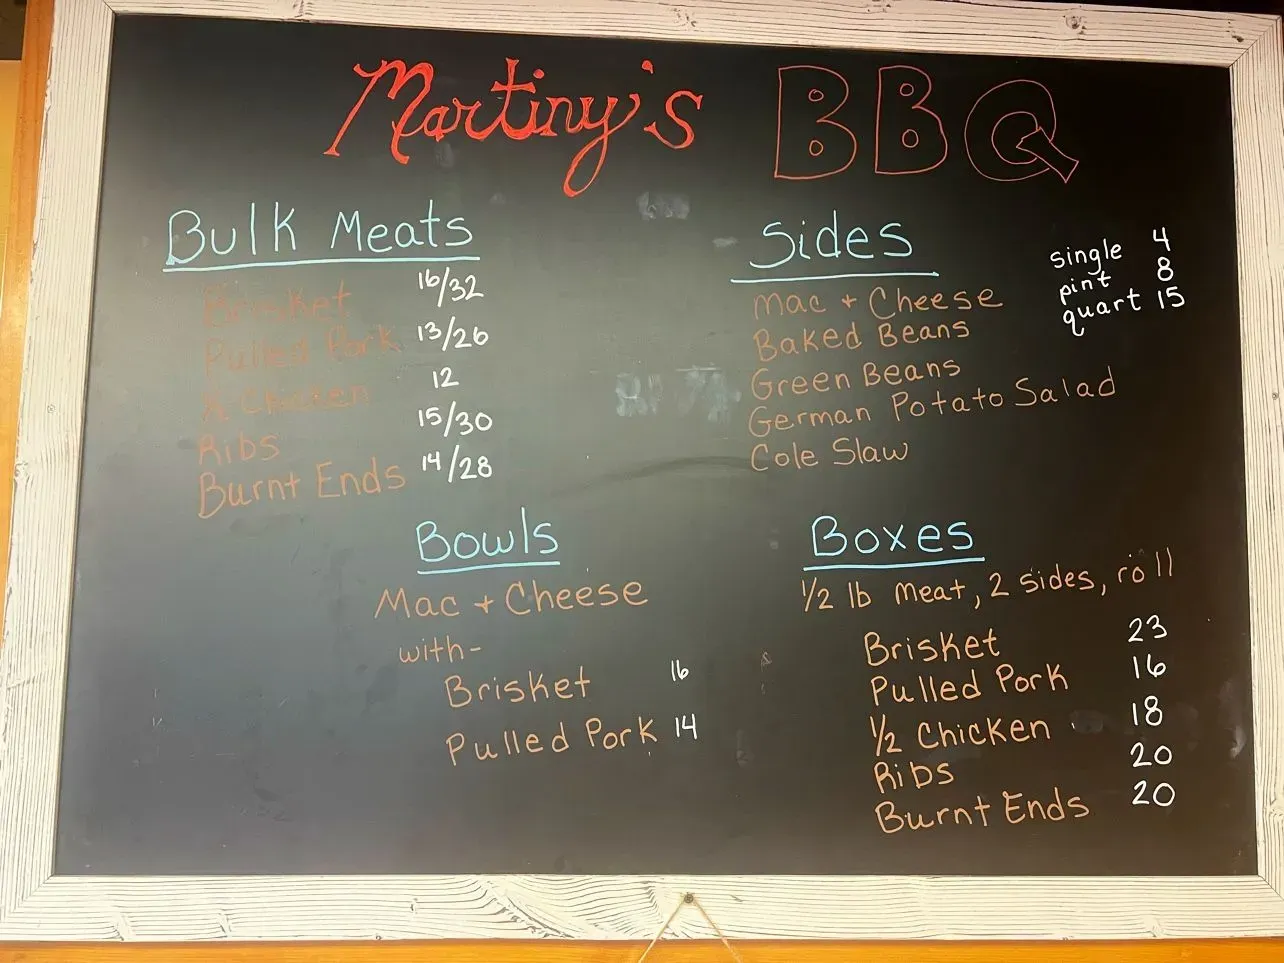 Martiny's BBQ
Bulk Meats
Brisket 16/32
Pulled Pork 13/26
½ Chicken 12
Ribs 15/30
Burnt Ends 14/28
Sides
single 4
pint 8
quart 15
Mac + Cheese
Baked Beans
Green Beans
German Potato Salad
Cole Slaw
Bowls
Mac + Cheese
with-
Brisket 16
Pulled Pork 14
Boxes
1/2 lb meat, 2 sides, roll
Brisket 23
Pulled Pork 16
1/2 Chicken 18
Ribs 20
Burnt Ends 20